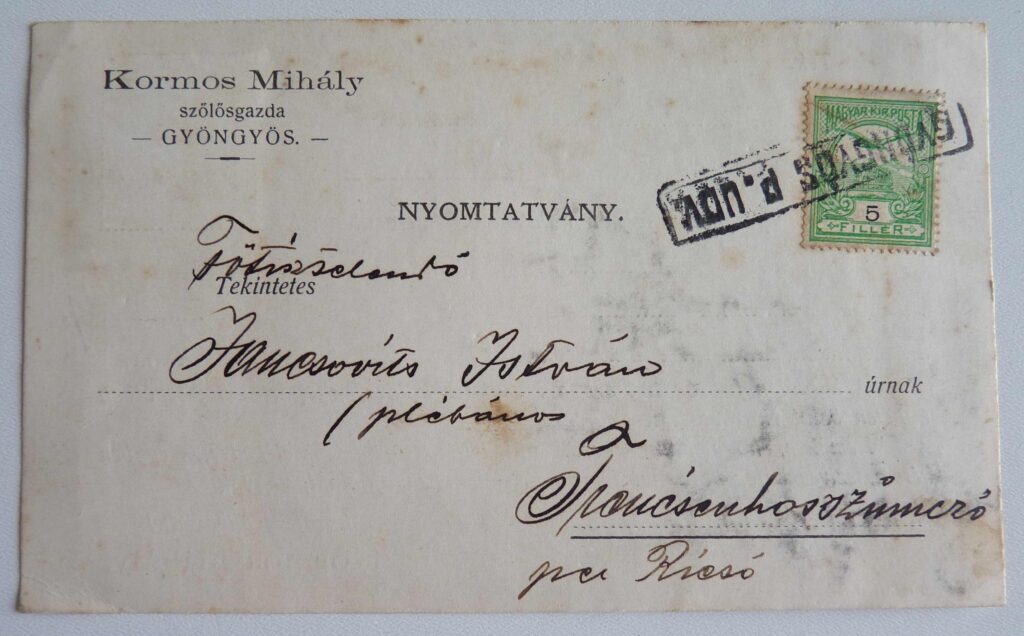 Kormos Mihály
szőlősgazda
— GYÖNGYÖS. —
MAGYAR KIR. POSTA
5
FILLÉR
GYÖNGYÖS P. UDV.
NYOMTATVÁNY.
Főtisztelendő
Tekintetes
Jancsovits István
úrnak
(plébános
Trencsénhosszúmező
per Ricsó